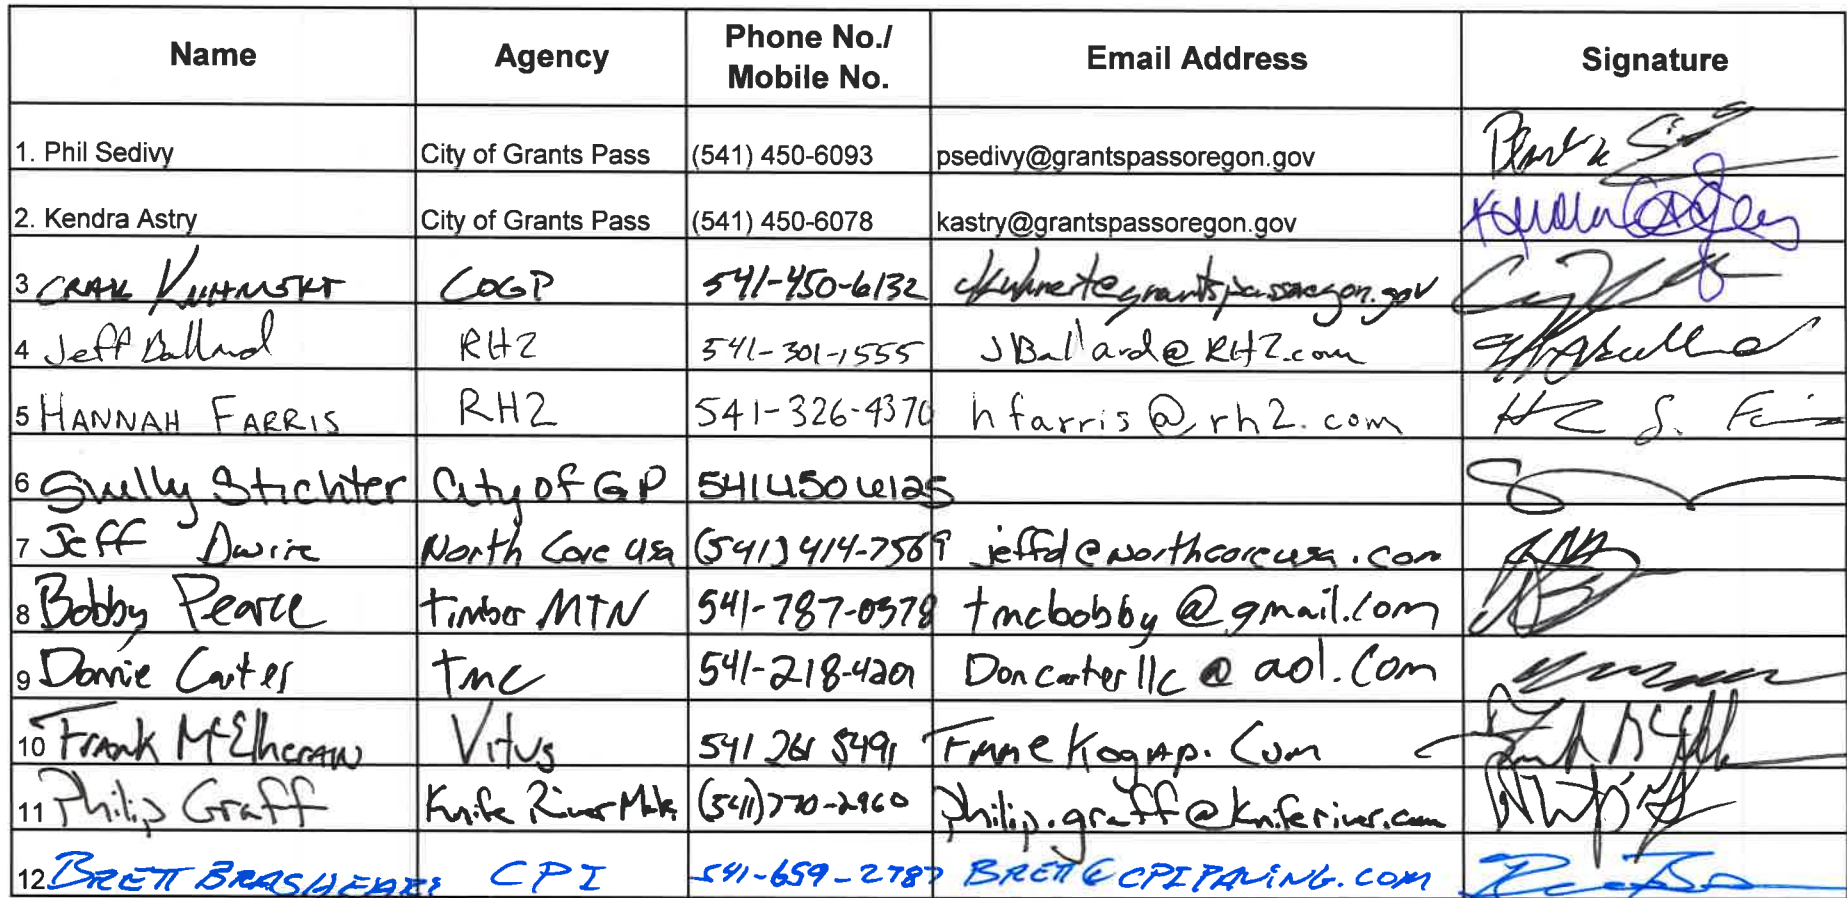 Name Agency Phone No./ Mobile No. Email Address Signature
1. Phil Sedivy City of Grants Pass (541) 450-6093 psedivy@grantspassoregon.gov
2. Kendra Astry City of Grants Pass (541) 450-6078 kastry@grantspassoregon.gov
3 COGP 541-450-6132 ckuhnert@grantspassoregon.gov
4 Jeff Ballard RH2 541-301-1555 JBallard@RH2.com
5 HANNAH FARRIS RH2 541-326-4370 hfarris@rh2.com
6 Stichter City of GP 541 450 6125
7 Jeff Dwire North Core usa (541) 414-7569 jeffd@northcoreusa.com
8 Bobby Pearce Timber MTN 541-787-0378 tmcbobby@gmail.com
9 Donnie Carter TMC 541-218-4201 Doncarterllc@aol.com
10 Frank Vitus 541 261 5491
11 Philip Graff Knife River (541) 770-2960 philip.graff@kniferiver.com
12 BRETT CPI 541-659-2787 BRETT@CPIPAVING.COM